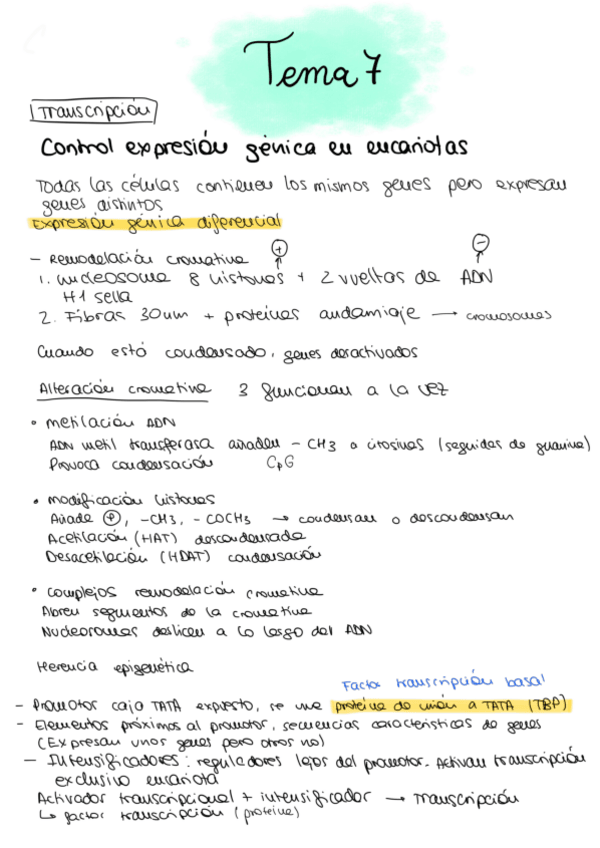 Tema 7
1 Transcripción
Control expresión génica en eucariotas
Todas las células contienen los mismos genes pero expresan
genes distintos
Expresión génica diferencial
- Remodelación cromatina
+ -
1. nucleosome 8 histones + 2 vueltas de ADN
H1 sella
2. Fibras 30nm + proteínas andamiaje → cromosomas
Cuando está condensado, genes desactivados
Alteración cromatina 3 funcionan a la vez
• metilación ADN
ADN metil transferasa añaden -CH3 a citosinas (seguidas de guanina)
Provoca condensación CpG
• modificación histonas
Añade P, -CH3, -COCH3 → condensan o descondensan
Acetilación (HAT) descondensada
Desacetilación (HDAT) condensación
• complejos remodelación cromatina
Abren segmentos de la cromatina
Nucleosomas deslicen a lo largo del ADN
Herencia epigenética
Factor transcripción basal
- Promotor caja TATA expuesto, se une proteína de unión a TATA (TBP)
- Elementos próximos al promotor, secuencias características de genes
(Expresan unos genes pero otros no)
- Intensificadores: reguladores lejos del promotor. Activan transcripción
exclusivo eucariota
Activador transcripcional + intensificador → Transcripción
↳ factor transcripción (proteína)